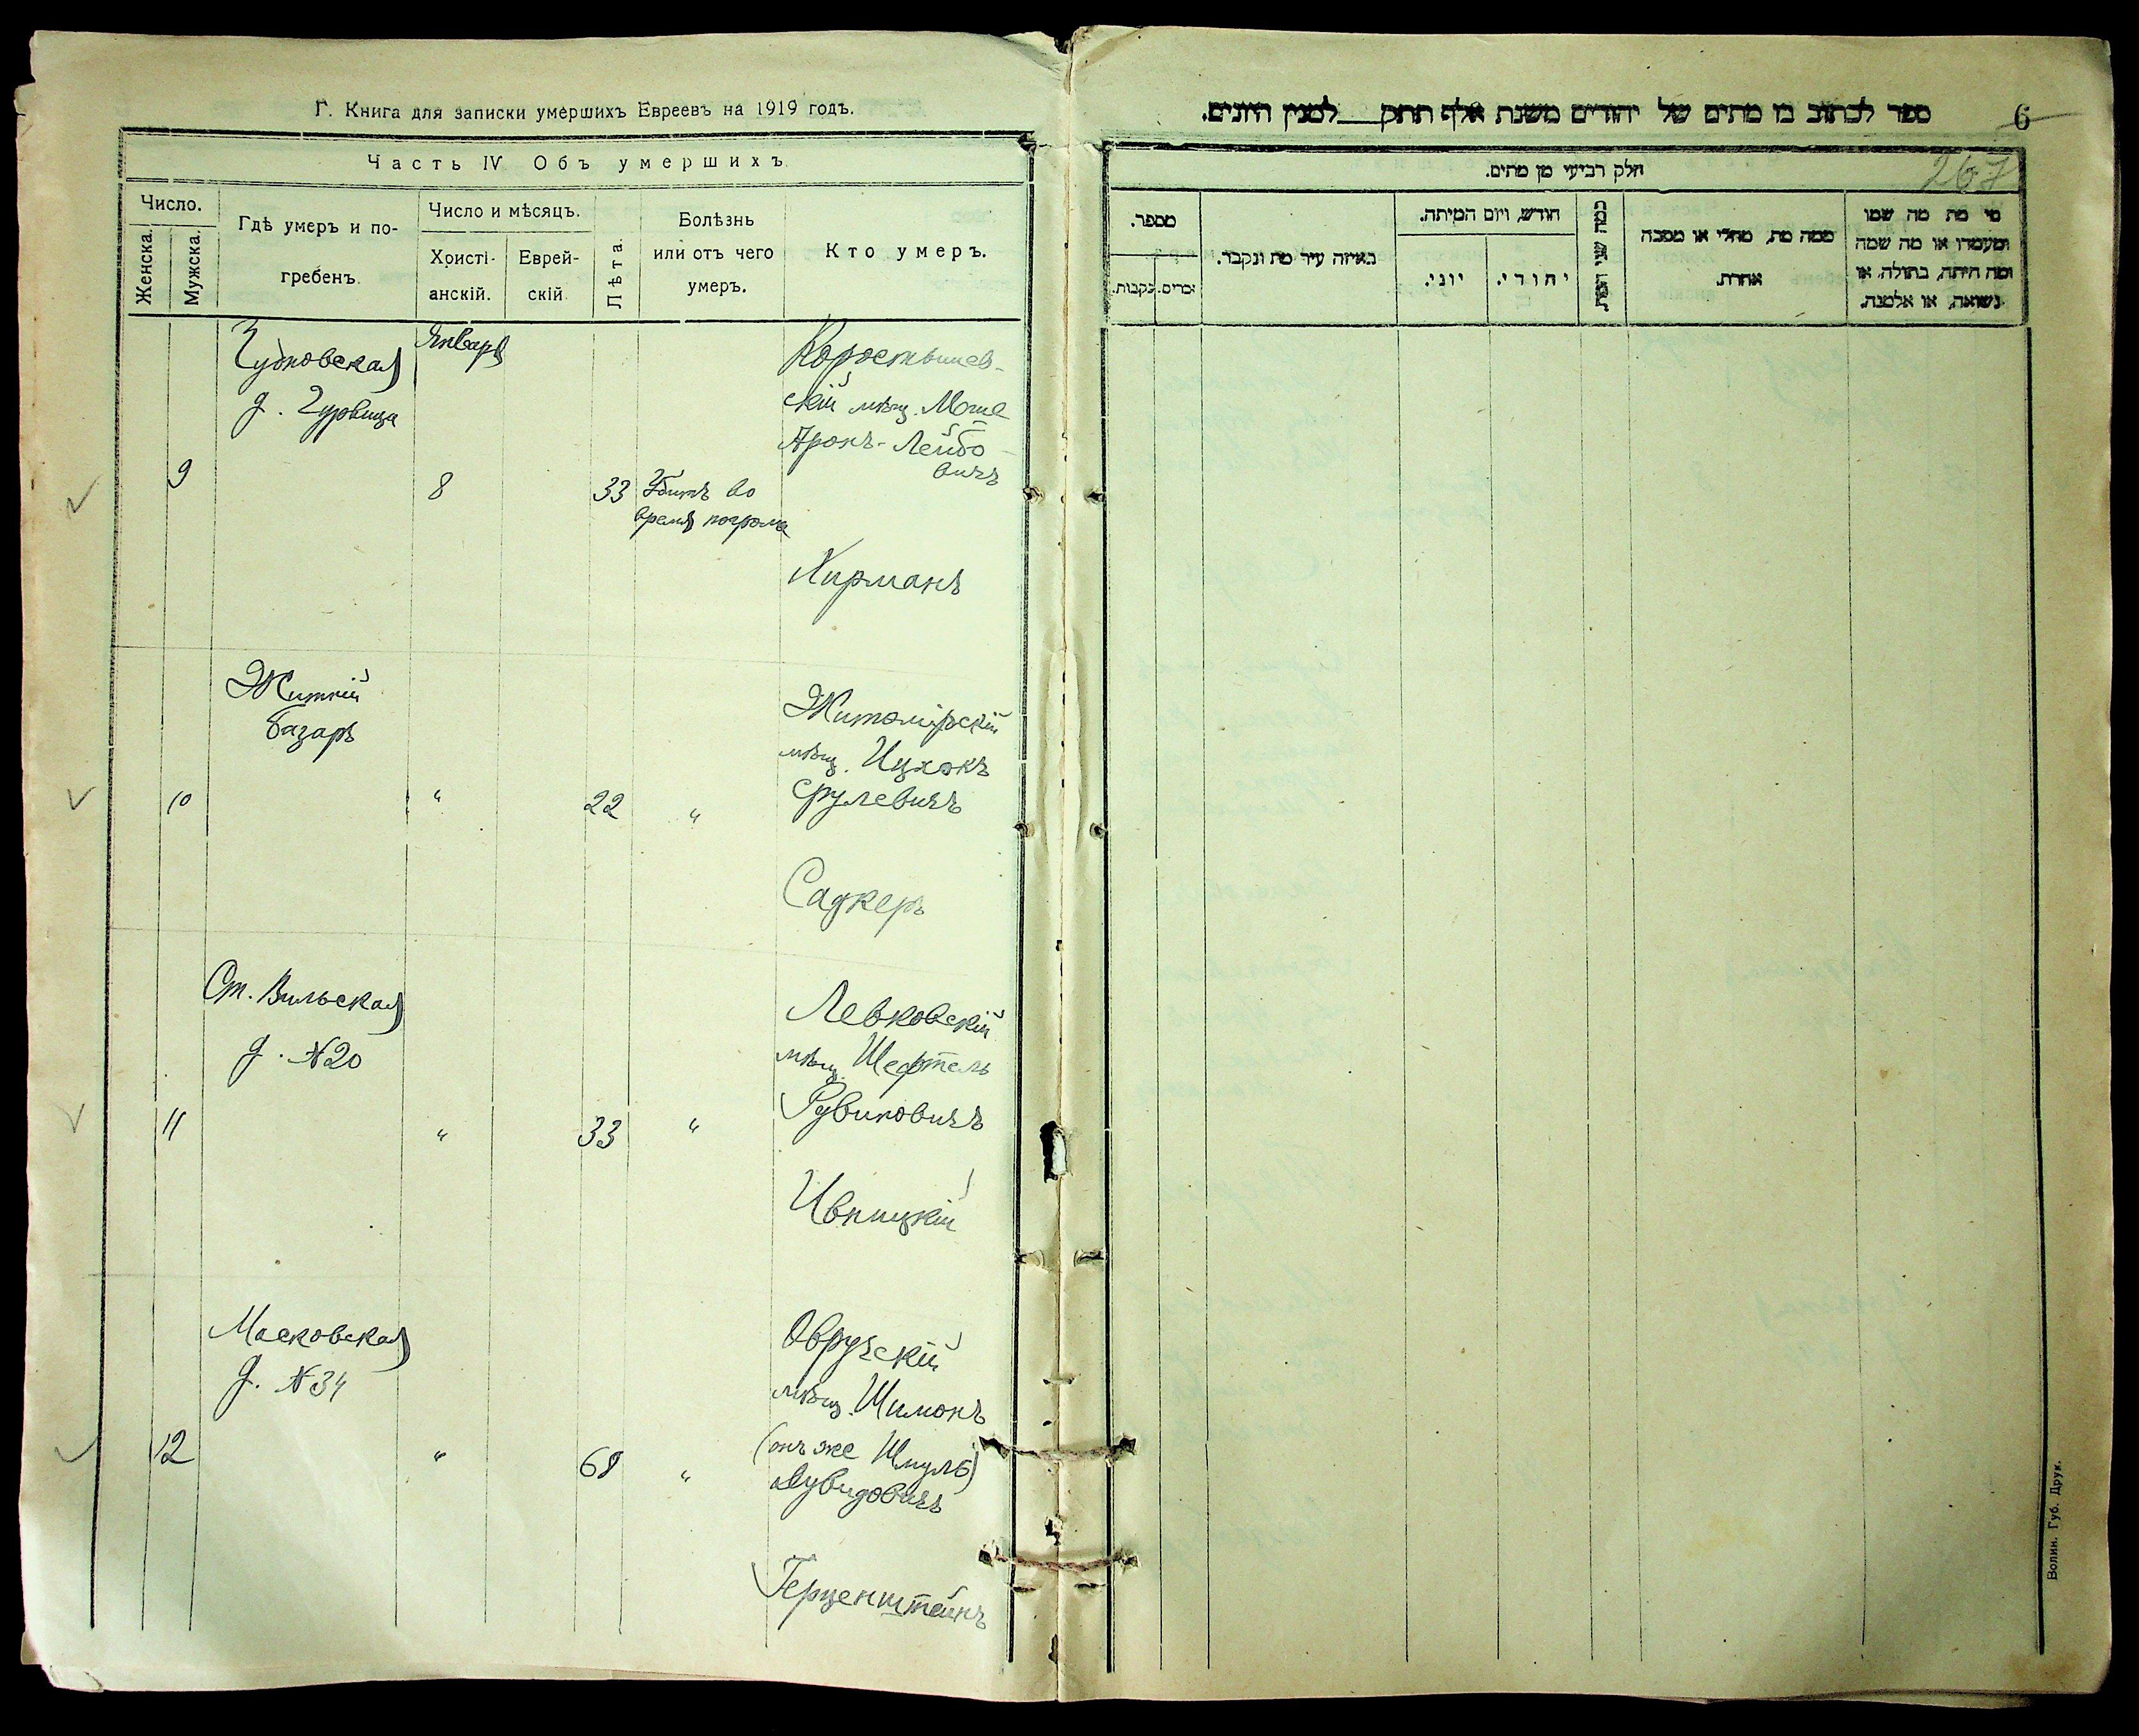 Г. Книга для записки умершихъ Евреевъ на 1919 годъ.
Часть IV Объ умершихъ
Число.
Женска.
Мужска.
Гдѣ умеръ и по-
гребенъ.
Число и мѣсяцъ.
Христі-
анскій.
Еврей-
скій
Лѣта.
Болѣзнь
или отъ чего
умеръ.
Кто умеръ.
Чудновская
д. Гурвица
Январь
9
8
33
Убитъ во
время погрома
Коростышев-
скій мѣщ. Моше
Аронъ-Лейбо-
вичъ
Кирманъ
Житній
базаръ
10
"
22
"
Житомірскій
мѣщ. Ицхокъ
Срулевичъ
Садкеръ
Ст. Вильская
д. №20
11
"
33
"
Левковскій
мѣщ. Шефтель
Рувиновичъ
Ивницкій
Московская
д. №34
12
"
68
"
Овручскій
мѣщ. Шимонъ
(онъ же Шмуль)
Дувидовичъ
Герценштейнъ
ספר לכתוב בו מתים של יהודים משנת אלף תתק___למנין היונים.
6
267
חלק רביעי מן מתים.
מספר.
נקבות.
זכרים.
באיזה עיר מת ונקבר.
חודש, ויום המיתה.
יוני.
יהודי.
כמה שני המת
ממה מת, מחלי או מסבה
אחרת.
מי מת מה שמו
ומעמדו או מה שמה
ומה היתה, בתולה, או
נשואה, או אלמנה.
Волин. Губ. Друк.